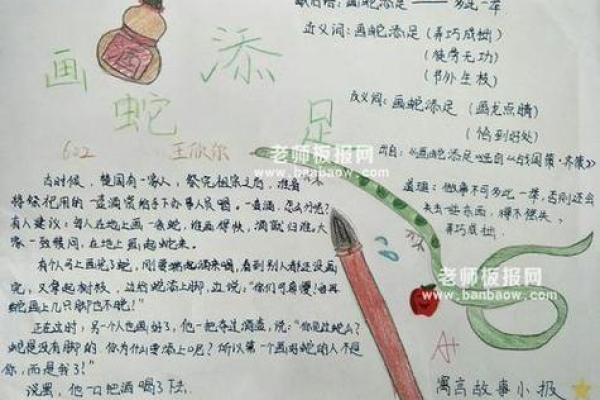 画蛇添足
602 王欣尔
古时候，楚国有一家人，祭完祖宗之后，准备
将祭祀用的一壶酒赏给手下办事人员喝，一壶酒，怎么分呢?
有人建议：每人在地上画一条蛇，谁画得快，
大家一致赞同，在地上画起蛇来。
有个人马上画完了蛇，刚要端起酒来喝，看到别人都还没画
完，又拿起树枝，边给蛇添上脚，边说：“你们可真慢!
蛇画上几只脚也不晚!”
正在这时，另一个人也画好了，他一把夺过酒壶，说：“你见过蛇么?
蛇是没有脚的，你为什么要添上足！所以第一个画好蛇的人不是
你，而是我了!”
说罢，他一口把酒喝了下去
歇后语：画蛇添足——多此一举
近义词：画蛇添足（弄巧成拙）
（徒劳无功）
（节外生枝）
反义词：画蛇添足（画龙点睛）
（恰到好处）
出自：《画蛇添足》出自《战国策·齐策》
道理：做事不可多此一举，否则还会
失去一些东西，得不偿失，
弄巧成拙.
酒
A+
寓言故事小报
老师板报网
www.banbaow.com
老师板报网
www.banbaow.com